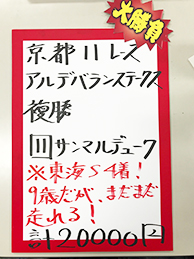 大勝負
京都11レース
アルデバランステークス
複勝
11 サンマルデューク
※東海S4着!
9歳だが、まだまだ
走れる!
計20000円